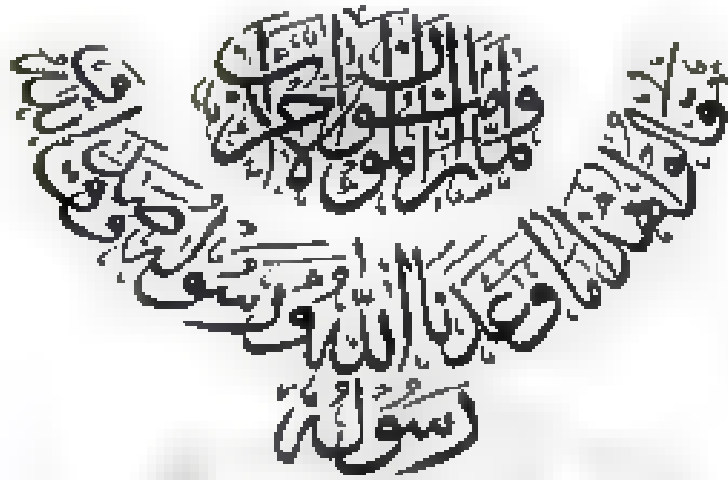 ولما رأى المؤمنون الأحزاب
قالوا هذا ما وعدنا الله ورسوله وصدق الله
ورسوله